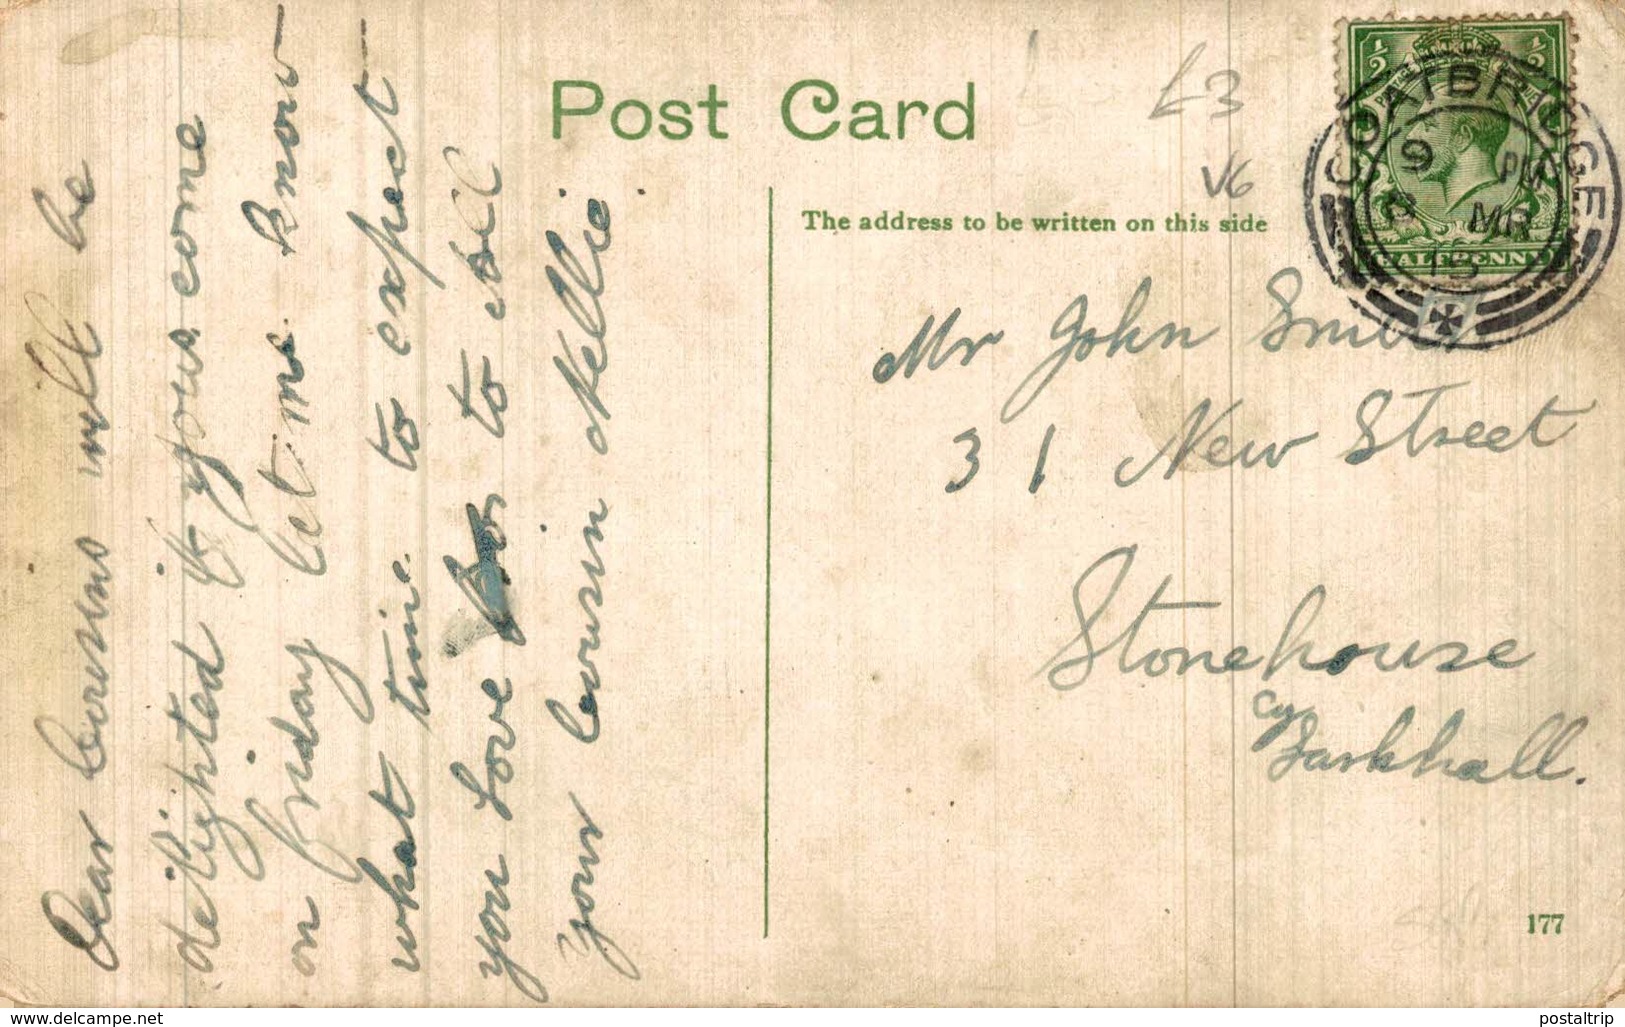 Post Card
The address to be written on this side
£3
V6
COATBRIDGE
9 PM
MR
15
½ ½
HALFPENNY
Mr John Smith
31 New Street
Stonehouse
c/o
Larkhall.
177
Dear Cousins will be
delighted to yous come
on friday let me know
what time to expect
you Love to all
your Cousin Nellie
www.delcampe.net
postaltrip